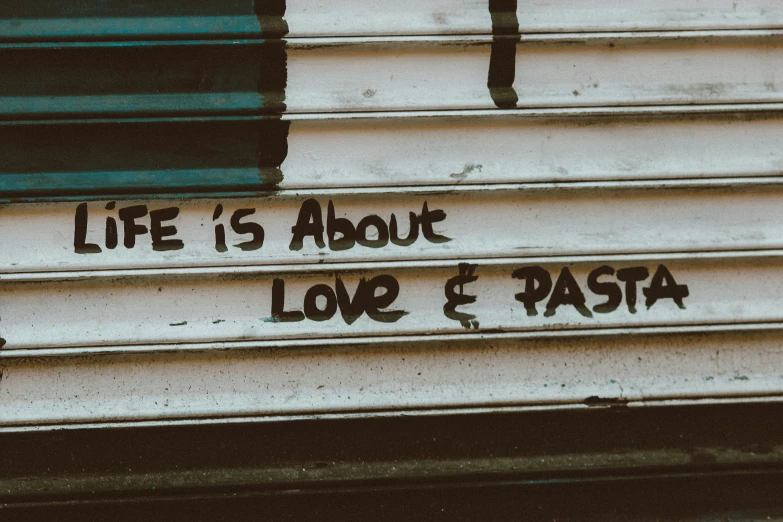 LiFE iS About
LOVe & PASTA